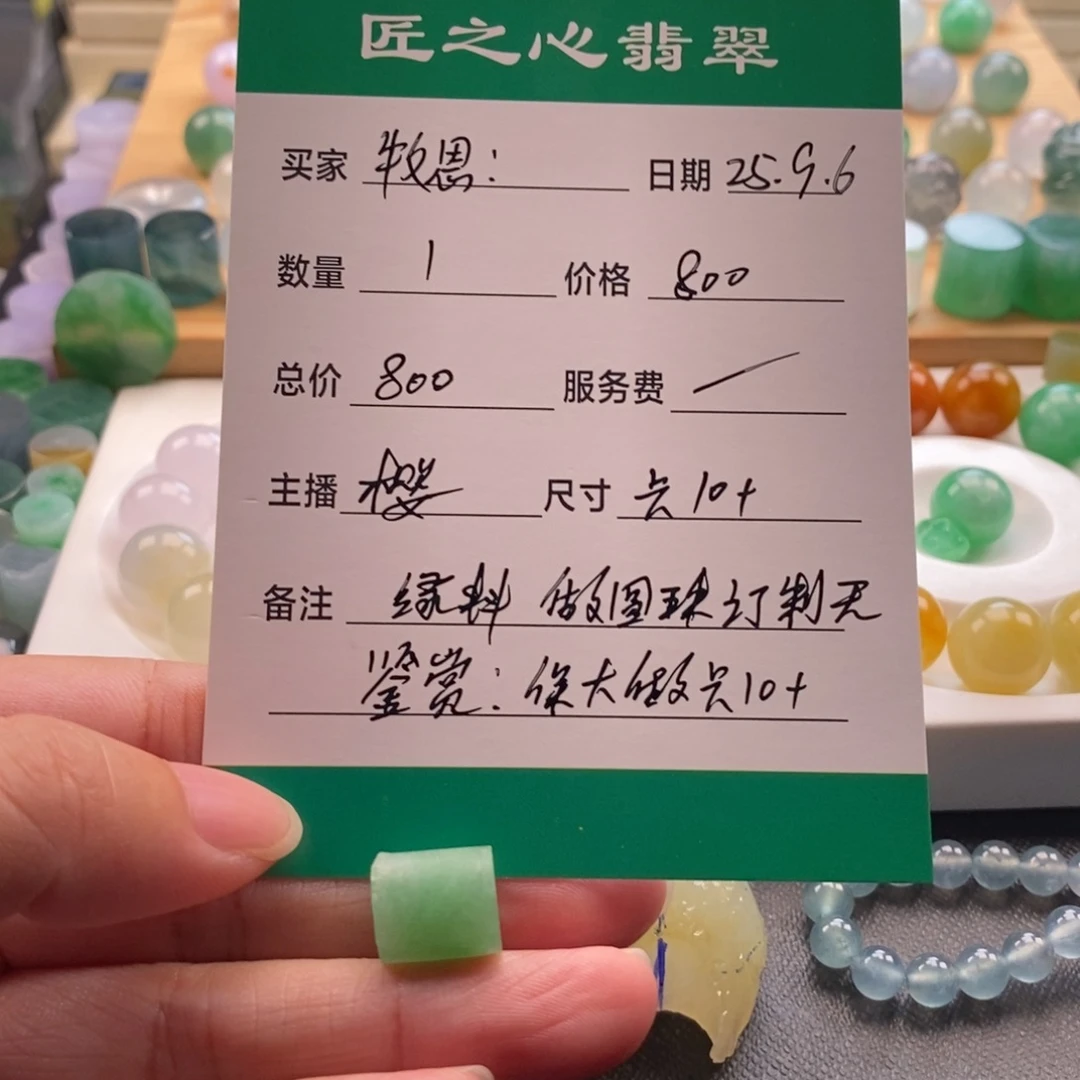 匠之心翡翠
买家 牧思: 日期 25.9.6
数量 1 价格 800
总价 800 服务费 /
主播 樱 尺寸 只10+
备注 绿料 做圆珠订制无
鉴赏: 保大做只10+